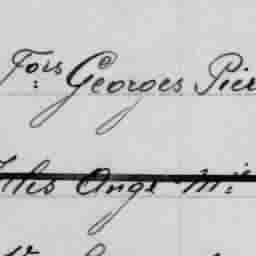 Fois Georges Pier
Jles Ange M.ie